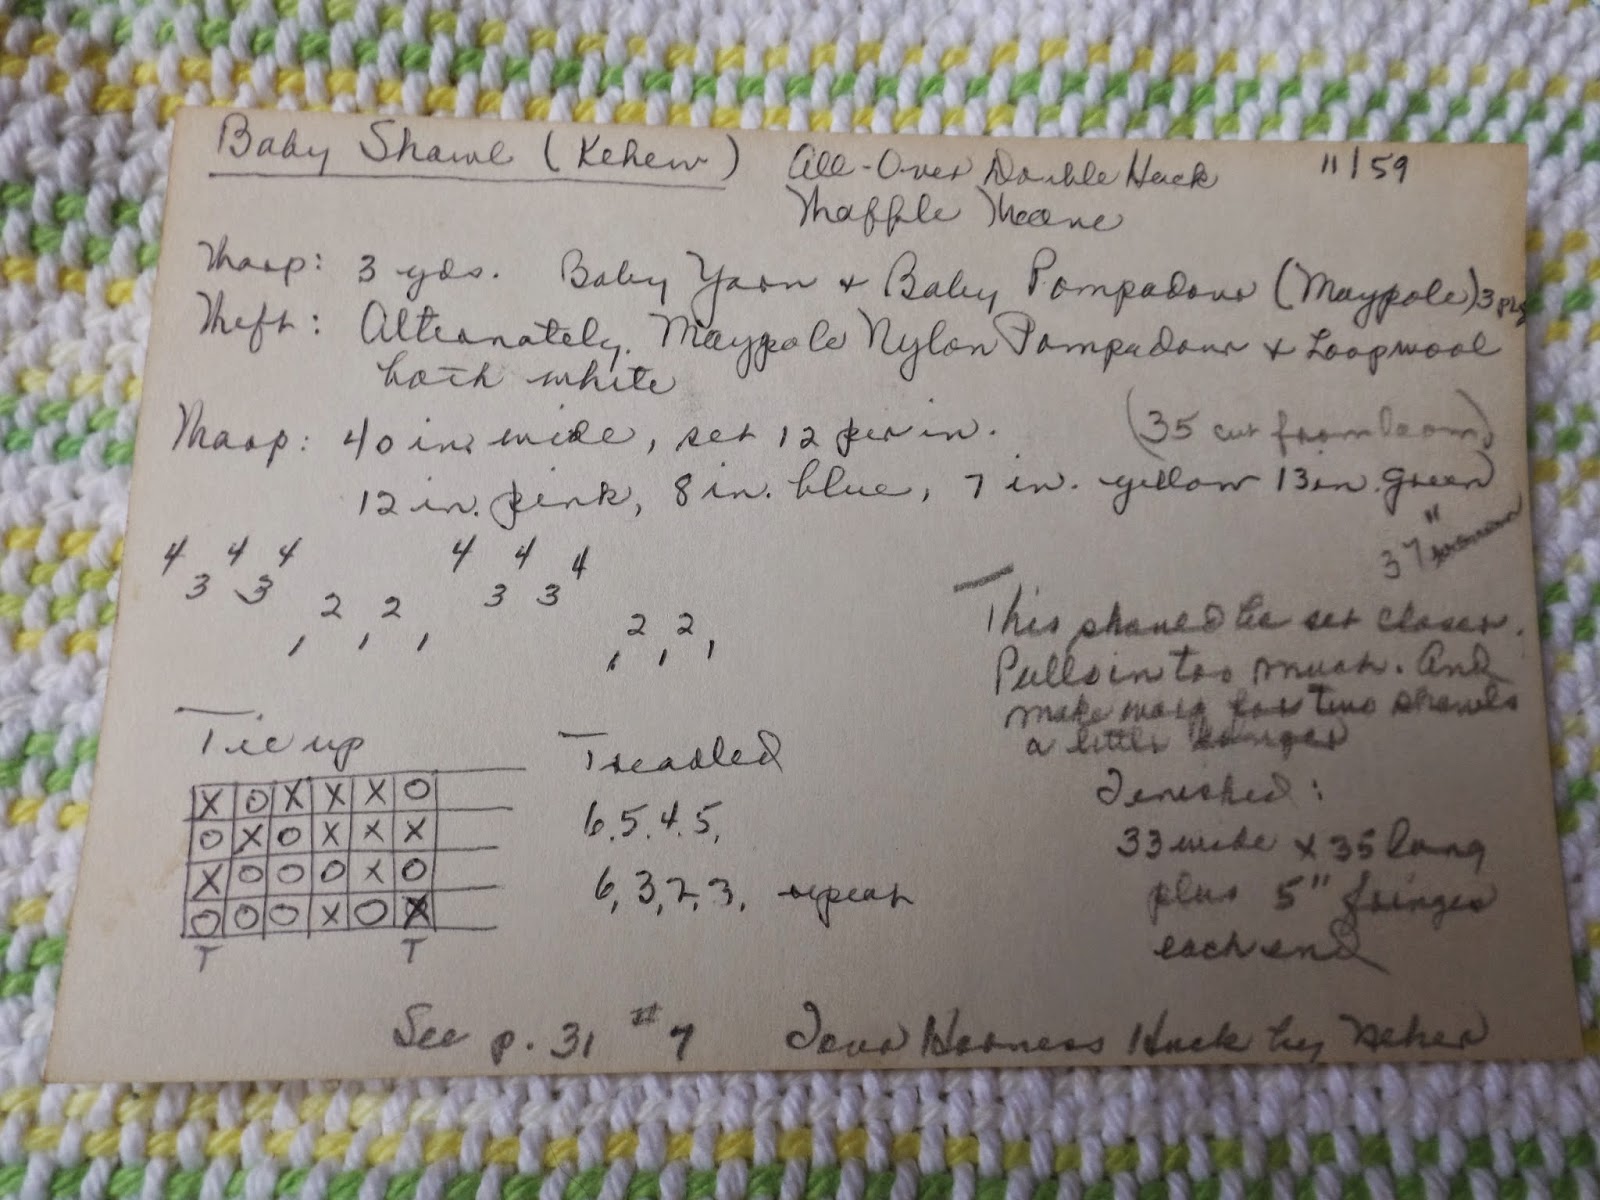 Baby Shawl (Kehew) All-Over Double Huck 11/59
Waffle Weave
Warp: 3 yds. Baby Yarn + Baby Pompadour (Maypole) 3 ply
Weft: Alternately. Maypole Nylon Pompadour + Loopwool
both white
Warp: 40 in. wide, set 12 per in. (35 cut from loom)
12 in. pink, 8 in. blue, 7 in. yellow 13 in. green
37"
4 4 4 4 4 4
3 3 3 3
2 2 2 2
1 1 1 1 1 1
This should be set closer.
Pulls in too much. And
make warp for two shawls
a little longer
Tie up
X O X X X O
O X O X X X
X O O O X O
O O O X O X
T T
Treadled
6, 5, 4, 5,
6, 3, 2, 3, repeat
Finished:
33 wide x 35 long
plus 5" fringes
each end
See p. 31 #7 Four Harness Huck by